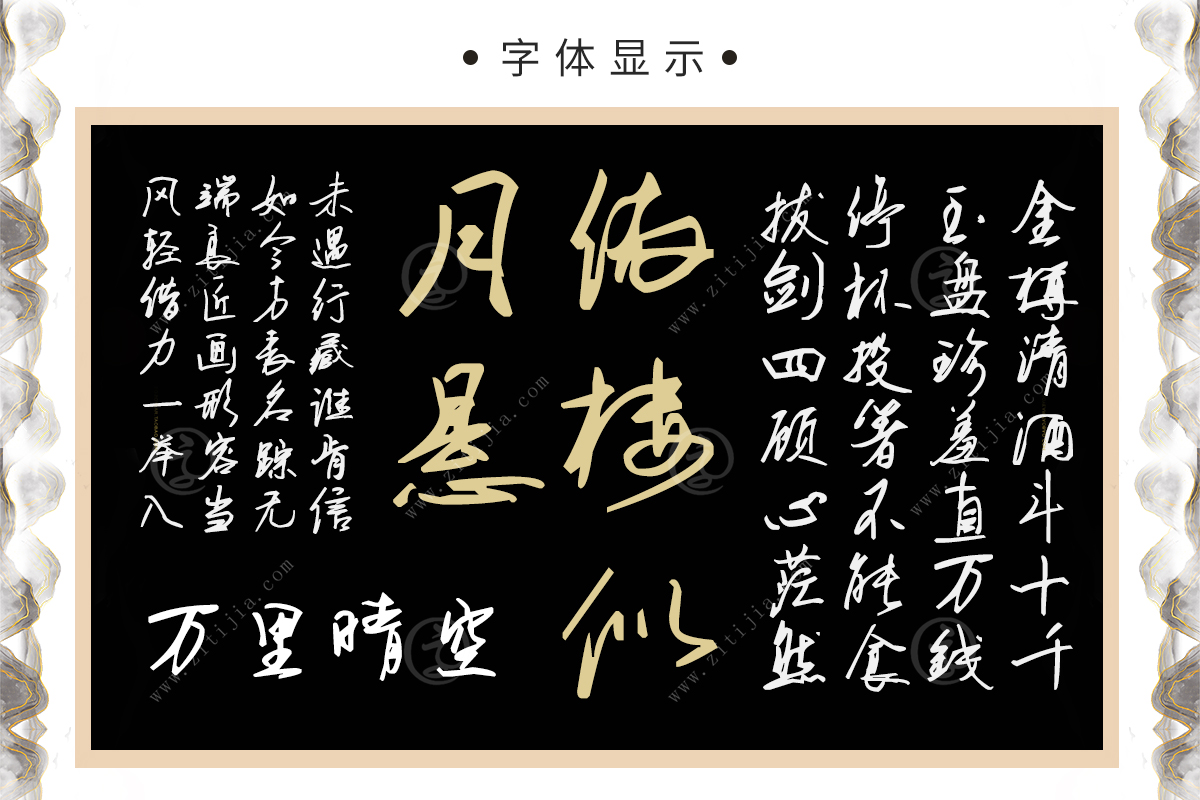 • 字体显示 •
金樽清酒斗十千
玉盘珍羞直万钱
停杯投箸不能食
拔剑四顾心茫然
楼似
月悬
未遇行藏谁肯信
如今方表名踪无
端良匠画形容当
风轻借力一举入
万里晴空
www.zitijia.com